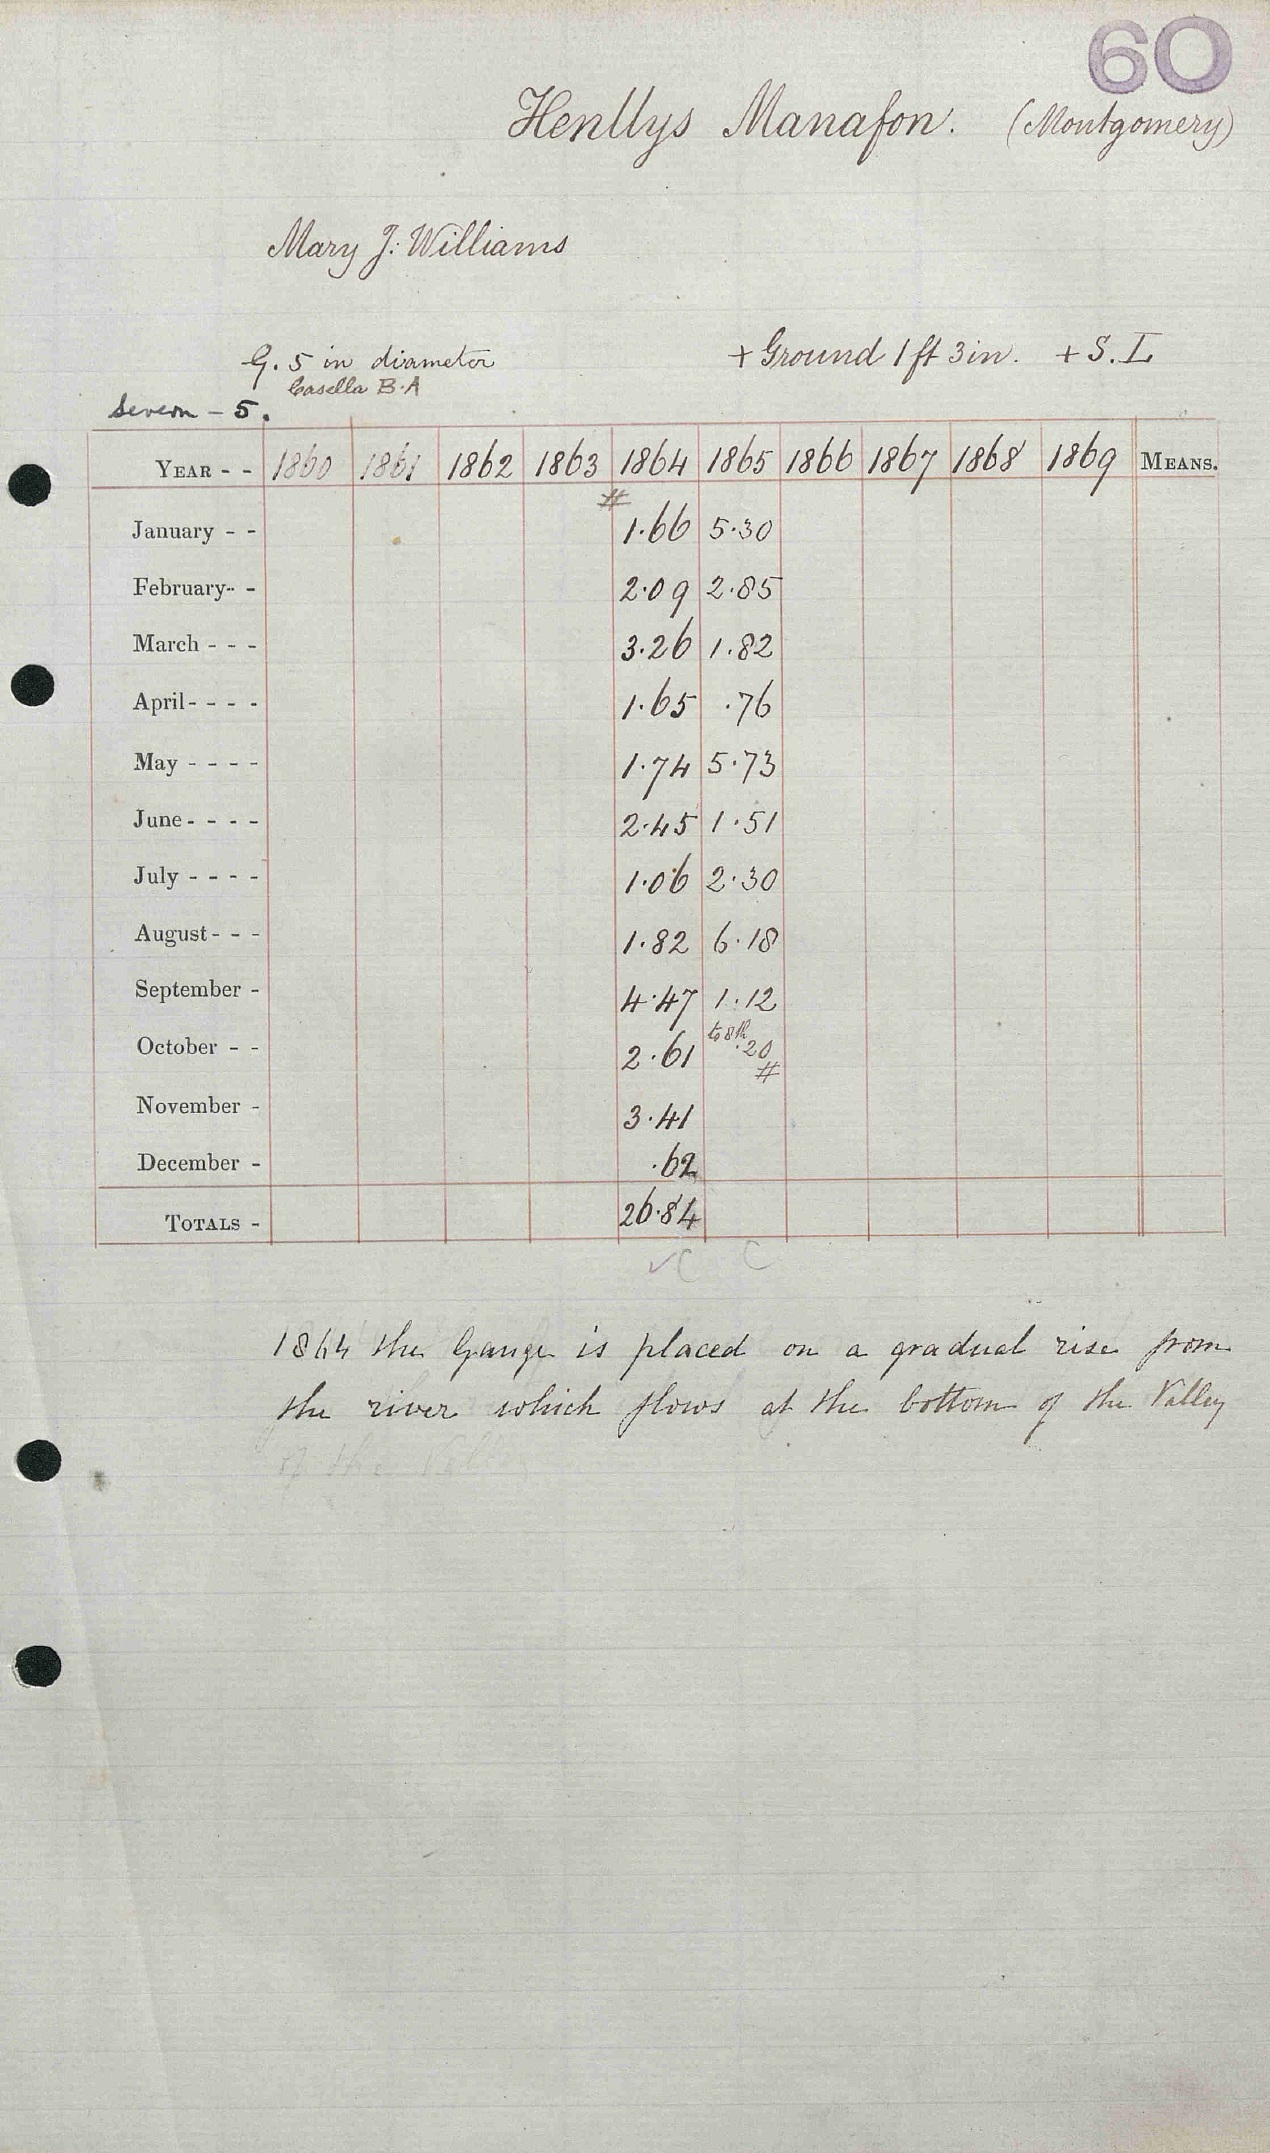 60
Henllys Manafon. (Montgomery)
Mary J. Williams
G. 5 in diameter + Ground 1 ft 3 in. + S. L
Casella B. A
Severn - 5.
YEAR - - 1860 1861 1862 1863 1864 1865 1866 1867 1868 1869 MEANS.
#
January - - 1.66 5.30
February- - 2.09 2.85
March - - - 3.26 1.82
April- - - - 1.65 .76
May - - - - 1.74 5.73
June- - - - 2.45 1.51
July - - - - 1.06 2.30
August- - - 1.82 6.18
September - 4.47 1.12
to 8th
October - - 2.61 .20
#
November - 3.41
December - .62
TOTALS - 26.84
✓C C
1864 the Gauge is placed on a gradual rise from
the river which flows at the bottom of the Valley
of the Valley